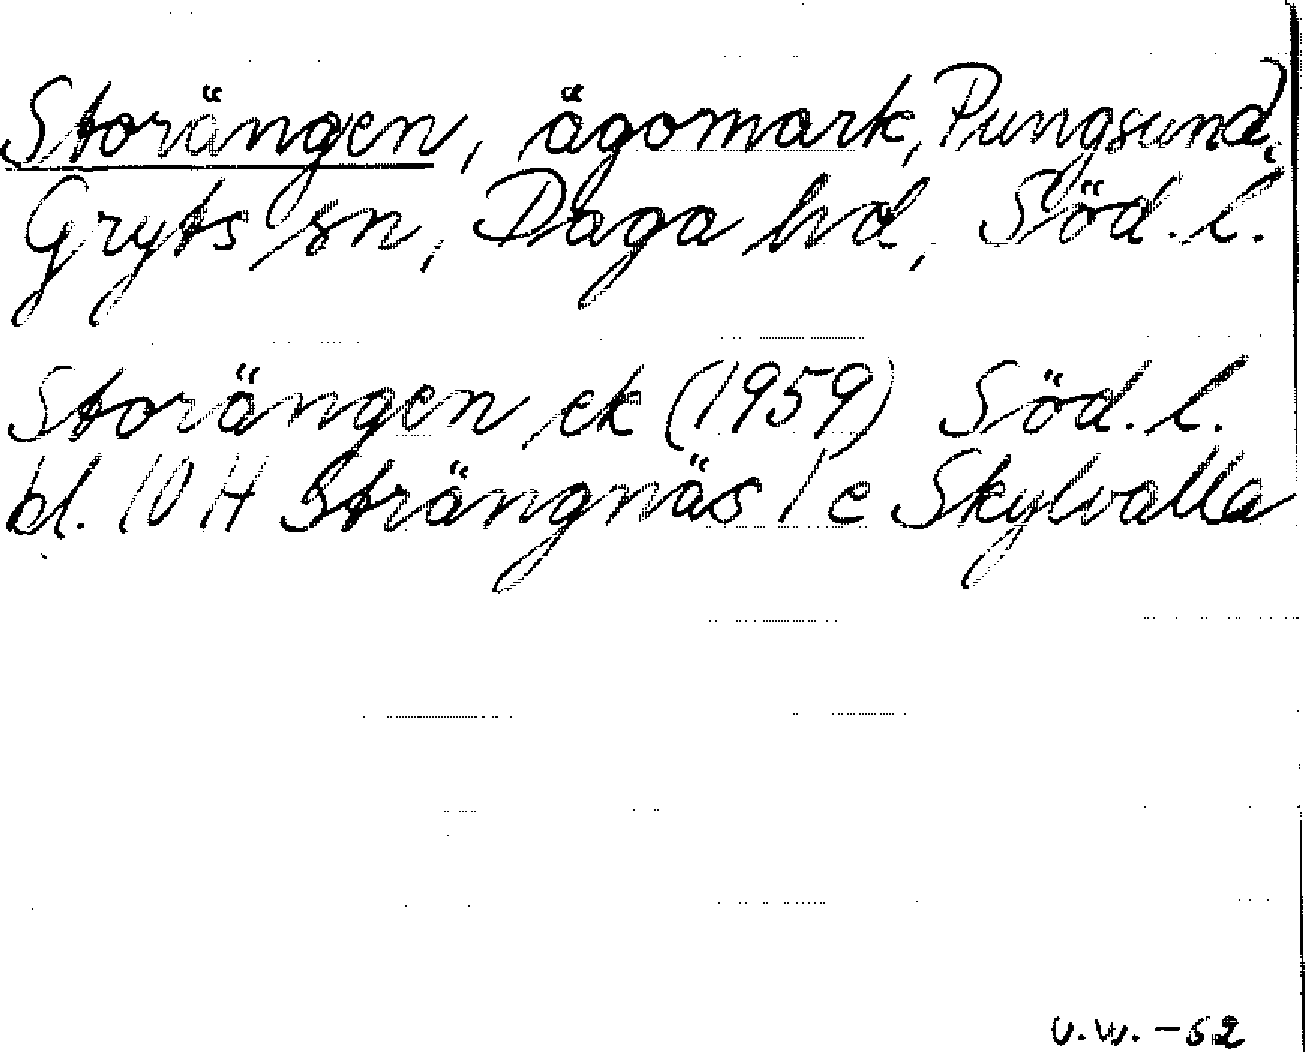 Storängen, ägomark, Pungsund,
Gryts sn, Daga hd, Söd. l.
Storängen ek (1959) Söd. l.
bl. 10 H Strängnäs 1 c Skylvalla
U.W. - 62